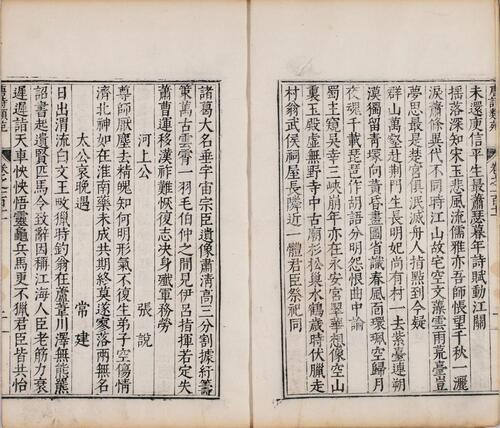 未還庾信平生最蕭瑟暮年詩賦動江關
搖落深知宋玉悲風流儒雅亦吾師悵望千秋一灑
淚蕭條異代不同時江山故宅空文藻雲雨荒臺豈
夢思最是楚宮俱泯滅舟人指點到今疑
群山萬壑赴荊門生長明妃尚有村一去紫臺連朔
漠獨留青塚向黃昏畫圖省識春風面環珮空歸月
夜魂千載琵琶作胡語分明怨恨曲中論
蜀主窺吳幸三峽崩年亦在永安宮翠華想像空山
裏玉殿虛無野寺中古廟杉松巢水鶴歲時伏臘走
村翁武侯祠屋長隣近一體君臣祭祀同
諸葛大名垂宇宙宗臣遺像肅清高三分割據紆籌
策萬古雲霄一羽毛伯仲之間見伊呂指揮若定失
蕭曹運移漢祚難恢復志決身殲軍務勞
河上公 張說
尊師厭塵去精魄知何明形氣不復生弟子空傷情
濟北神如在淮南藥未成共期終莫遂寥落兩無名
太公哀晚遇 常建
日出渭流白文王畋獵時釣翁在蘆葦川澤無熊羆
詔書起遺賢匹馬令致辭因稱江海人臣老筋力衰
遲遲詣天車怏怏悟靈龜兵馬更不獵君臣皆共怡